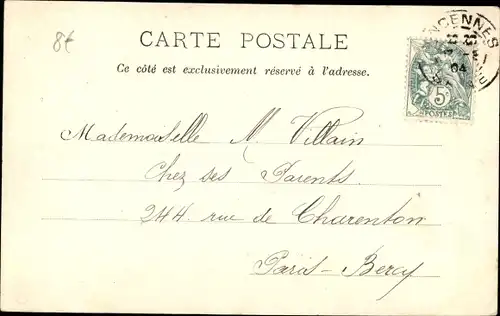 8€
CARTE POSTALE
Ce côté est exclusivement réservé à l'adresse.
VINCENNES
04
5c
POSTES
Mademoiselle M. Villain
Chez ses Parents.
244 rue de Charenton
Paris-Bercy